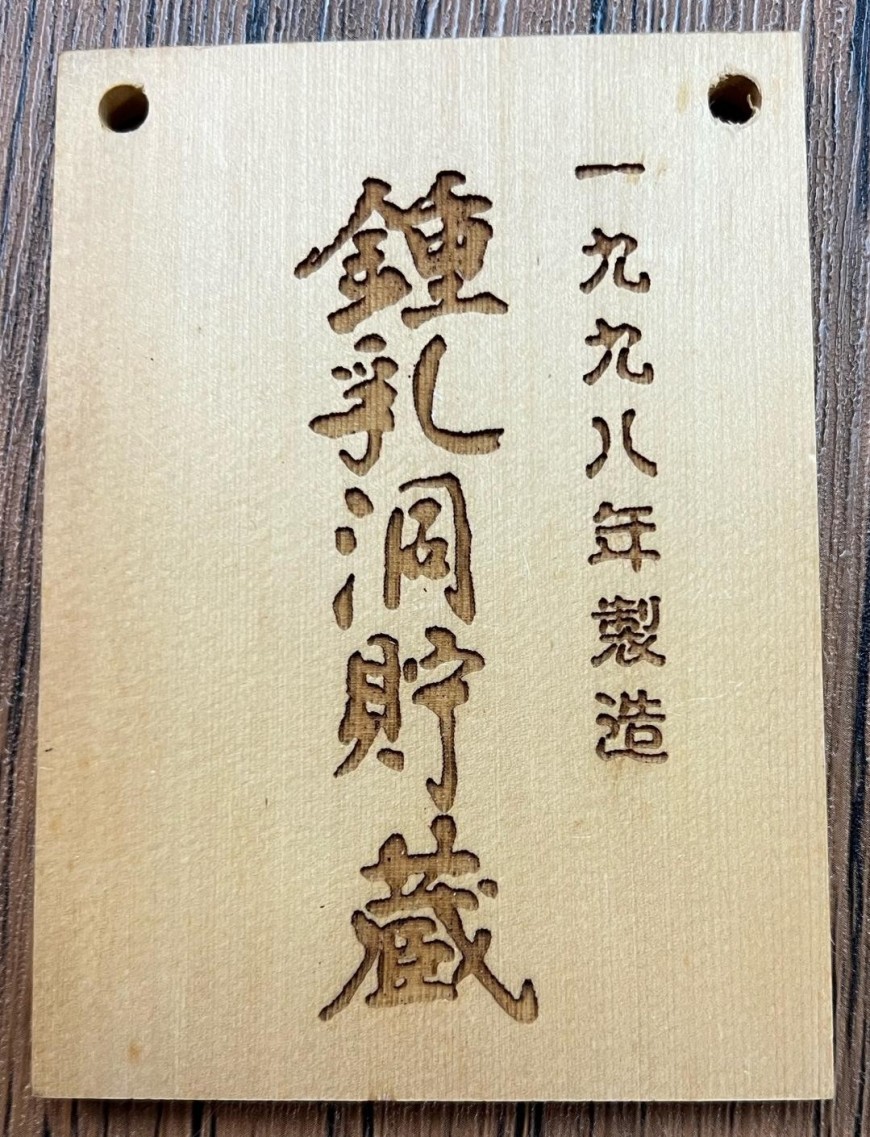 一九九八年製造
鍾乳洞貯蔵